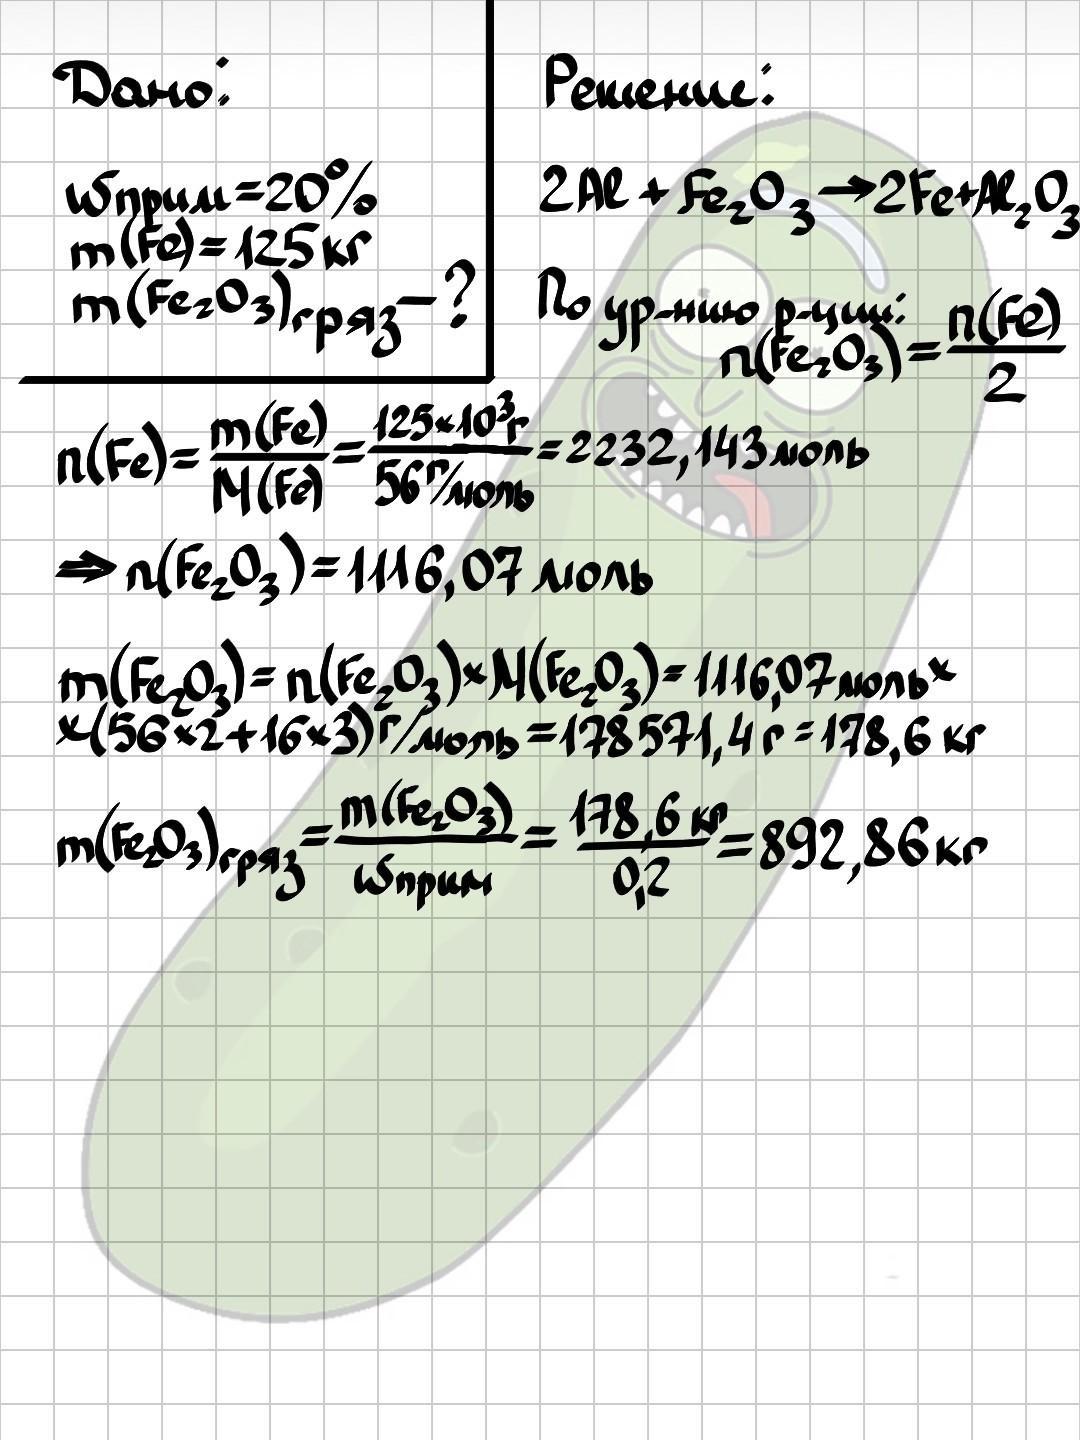 Дано:
ωприм=20%
m(Fe)=125кг
m(Fe₂O₃)гряз-?
Решение:
2Al + Fe₂O₃ →2Fe+Al₂O₃
По ур-нию р-ции:
n(Fe₂O₃)=n(Fe)/2
n(Fe)=m(Fe)/M(Fe)=125×10³г/56г/моль=2232,143моль
⇒n(Fe₂O₃)=1116,07 моль
m(Fe₂O₃)=n(Fe₂O₃)×M(Fe₂O₃)=1116,07моль×
×(56×2+16×3)г/моль=178571,4г=178,6 кг
m(Fe₂O₃)гряз=m(Fe₂O₃)/ωприм=178,6 кг/0,2=892,86кг